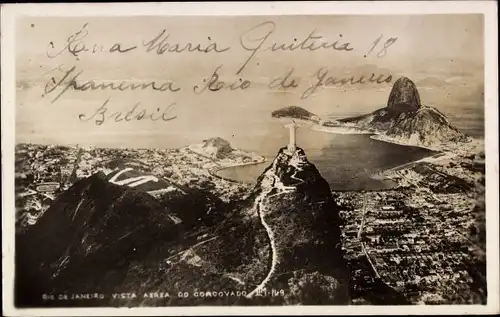 Rua Maria Quiteria 18
Ipanema Rio de Janeiro
Brésil
RIO DE JANEIRO VISTA AEREA DO CORCOVADO